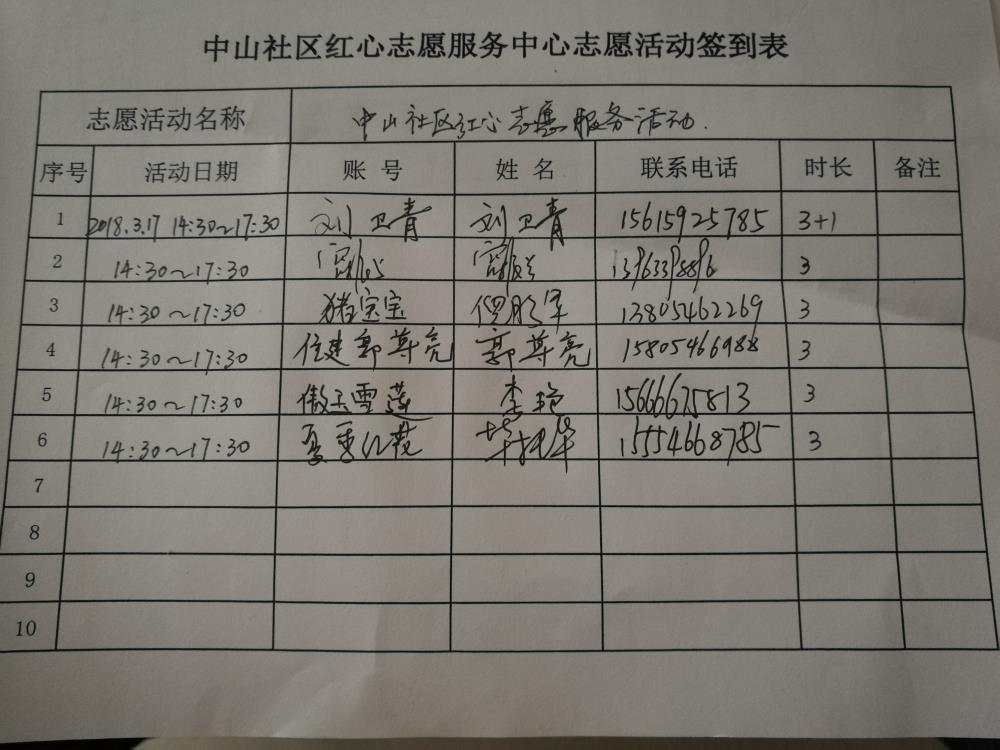 中山社区红心志愿服务中心志愿活动签到表
志愿活动名称 中山社区红心志愿服务活动.
序号 活动日期 账号 姓名 联系电话 时长 备注
1 2018.3.17 14:30~17:30 刘卫青 刘卫青 15615925785 3+1
2 14:30~17:30 3
3 14:30~17:30 猪宝宝 13805462269 3
4 14:30~17:30 住建郭尊亮 郭尊亮 15805466988 3
5 14:30~17:30 傲玉雪莲 李艳 15666675813 3
6 14:30~17:30 15554668785 3
7
8
9
10